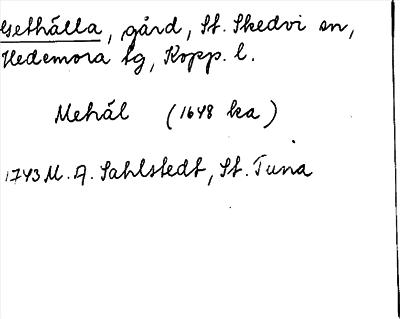 Gethälla, gård, St. Skedvi sn,
Hedemora tg, Kopp. l.
Mehál (1648 ka)
1743 M. A. Sahlstedt, St. Tuna